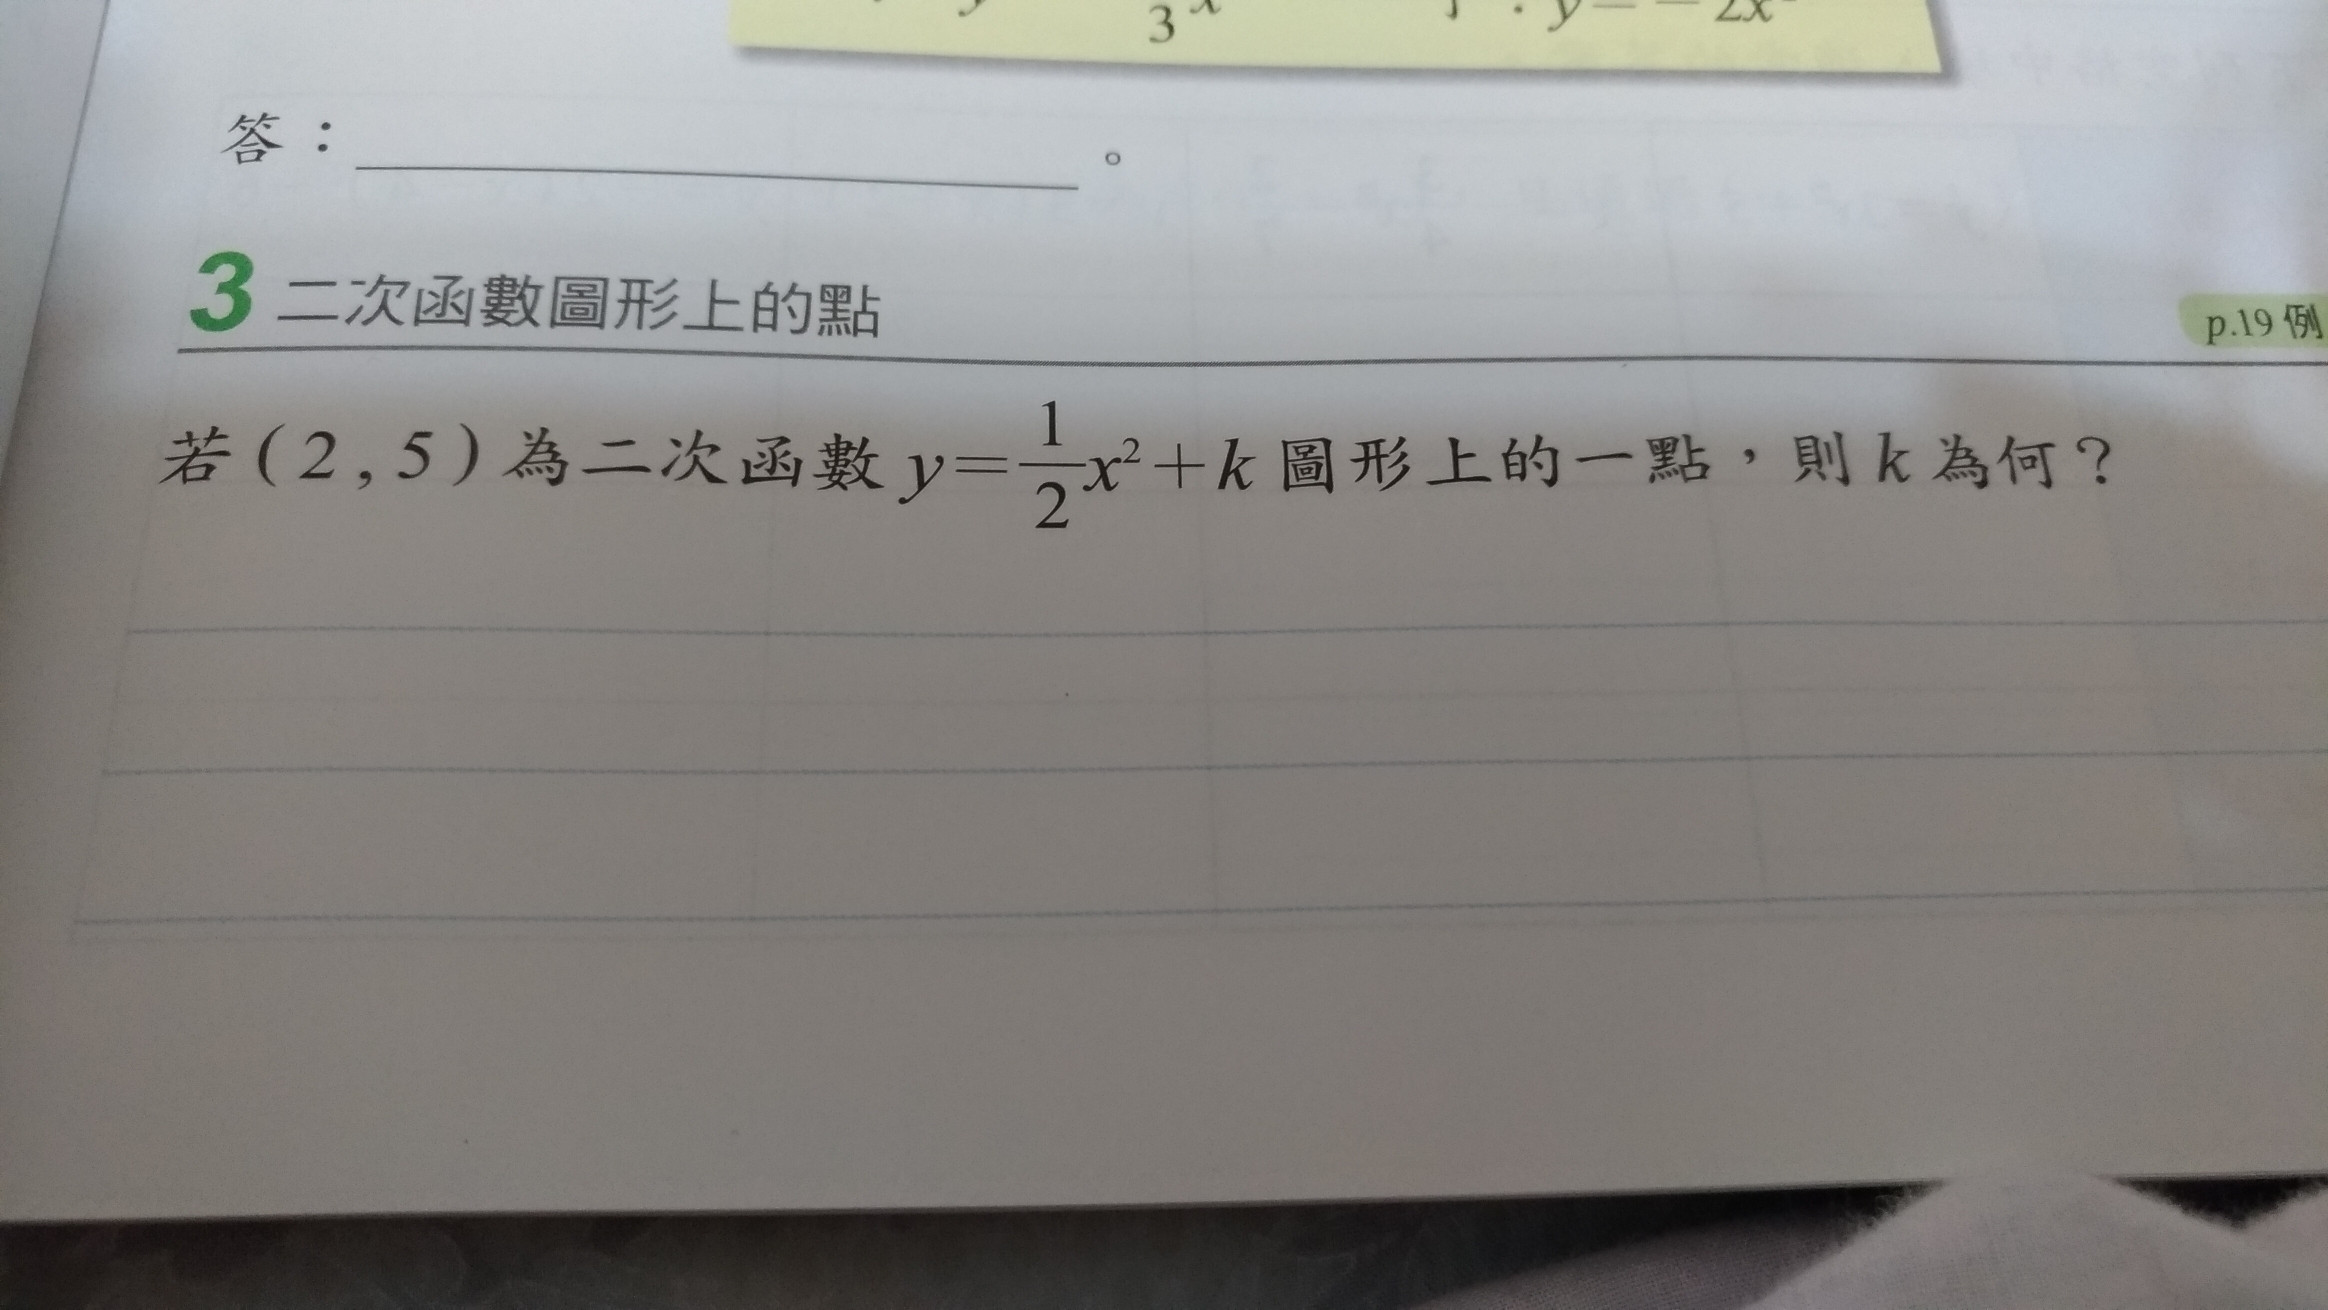 3 y=-2x
答：。
3 二次函數圖形上的點
p.19 例
若(2,5)為二次函數 y=\frac{1}{2}x²+k 圖形上的一點，則 k 為何？